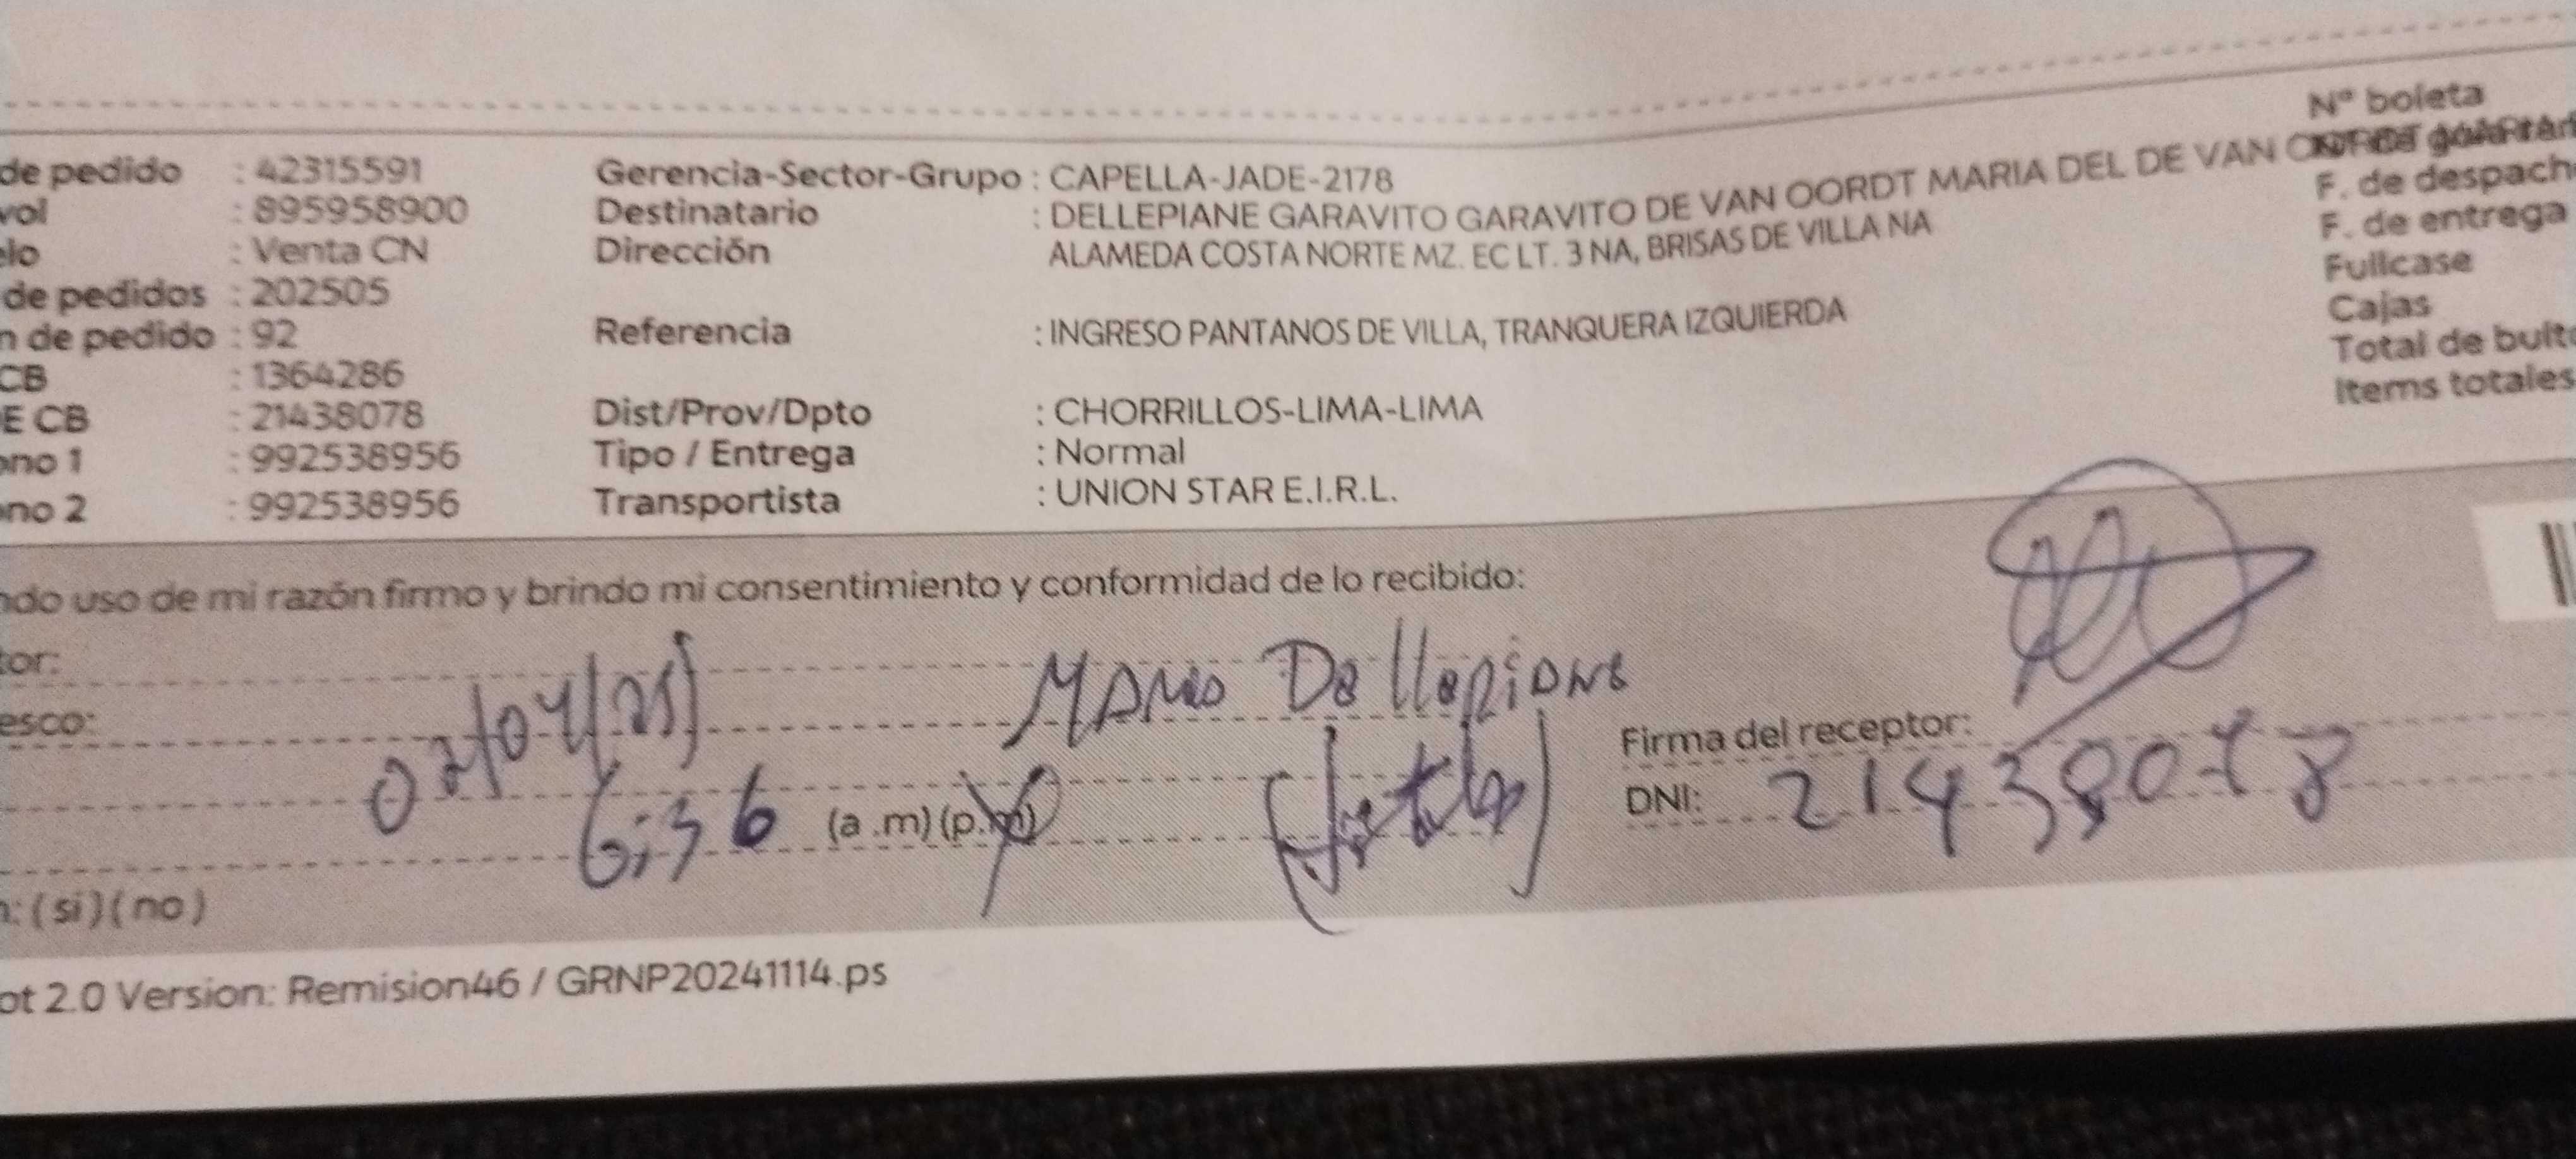 Nº boleta
de pedido : 42315591 Gerencia-Sector-Grupo : CAPELLA-JADE-2178
vol : 895958900 Destinatario : DELLEPIANE GARAVITO GARAVITO DE VAN OORDT MARIA DEL DE VAN F. de despach
elo : Venta CN Dirección ALAMEDA COSTA NORTE MZ. EC LT. 3 NA, BRISAS DE VILLA NA F. de entrega
de pedidos : 202505 Fullcase
n de pedido : 92 Referencia : INGRESO PANTANOS DE VILLA, TRANQUERA IZQUIERDA Cajas
CB : 1364286 Total de bult
E CB : 21438078 Dist/Prov/Dpto : CHORRILLOS-LIMA-LIMA Items totales
ono 1 : 992538956 Tipo / Entrega : Normal
ono 2 : 992538956 Transportista : UNION STAR E.I.R.L.
ndo uso de mi razón firmo y brindo mi consentimiento y conformidad de lo recibido:
tor:
esco: Dellepiane
Firma del receptor:
6:36 (a .m) (p.m) DNI: 21438078
n: ( si ) ( no )
ot 2.0 Version: Remision46 / GRNP20241114.ps